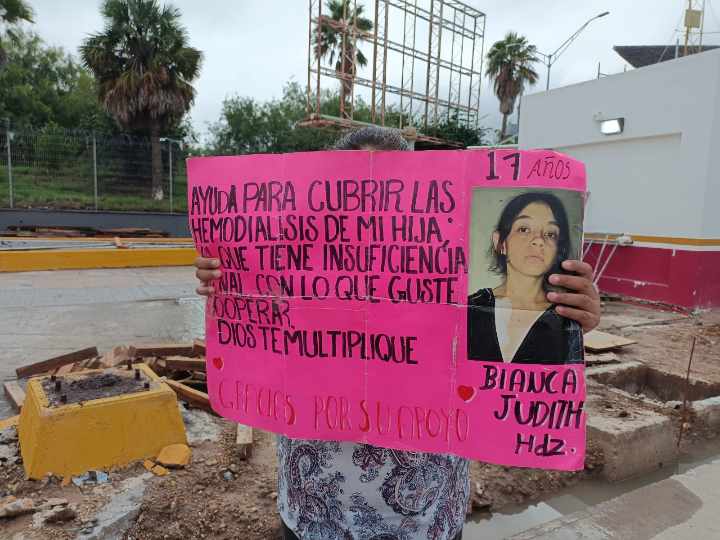 AYUDA PARA CUBRIR LAS
HEMODIALISIS DE MI HIJA,
QUE TIENE INSUFICIENCIA
CON LO QUE GUSTE
COOPERAR.
DIOS TE MULTIPLIQUE
GRACIAS POR SU APOYO
17 AÑOS
BIANCA
JUDITH
Hdz.